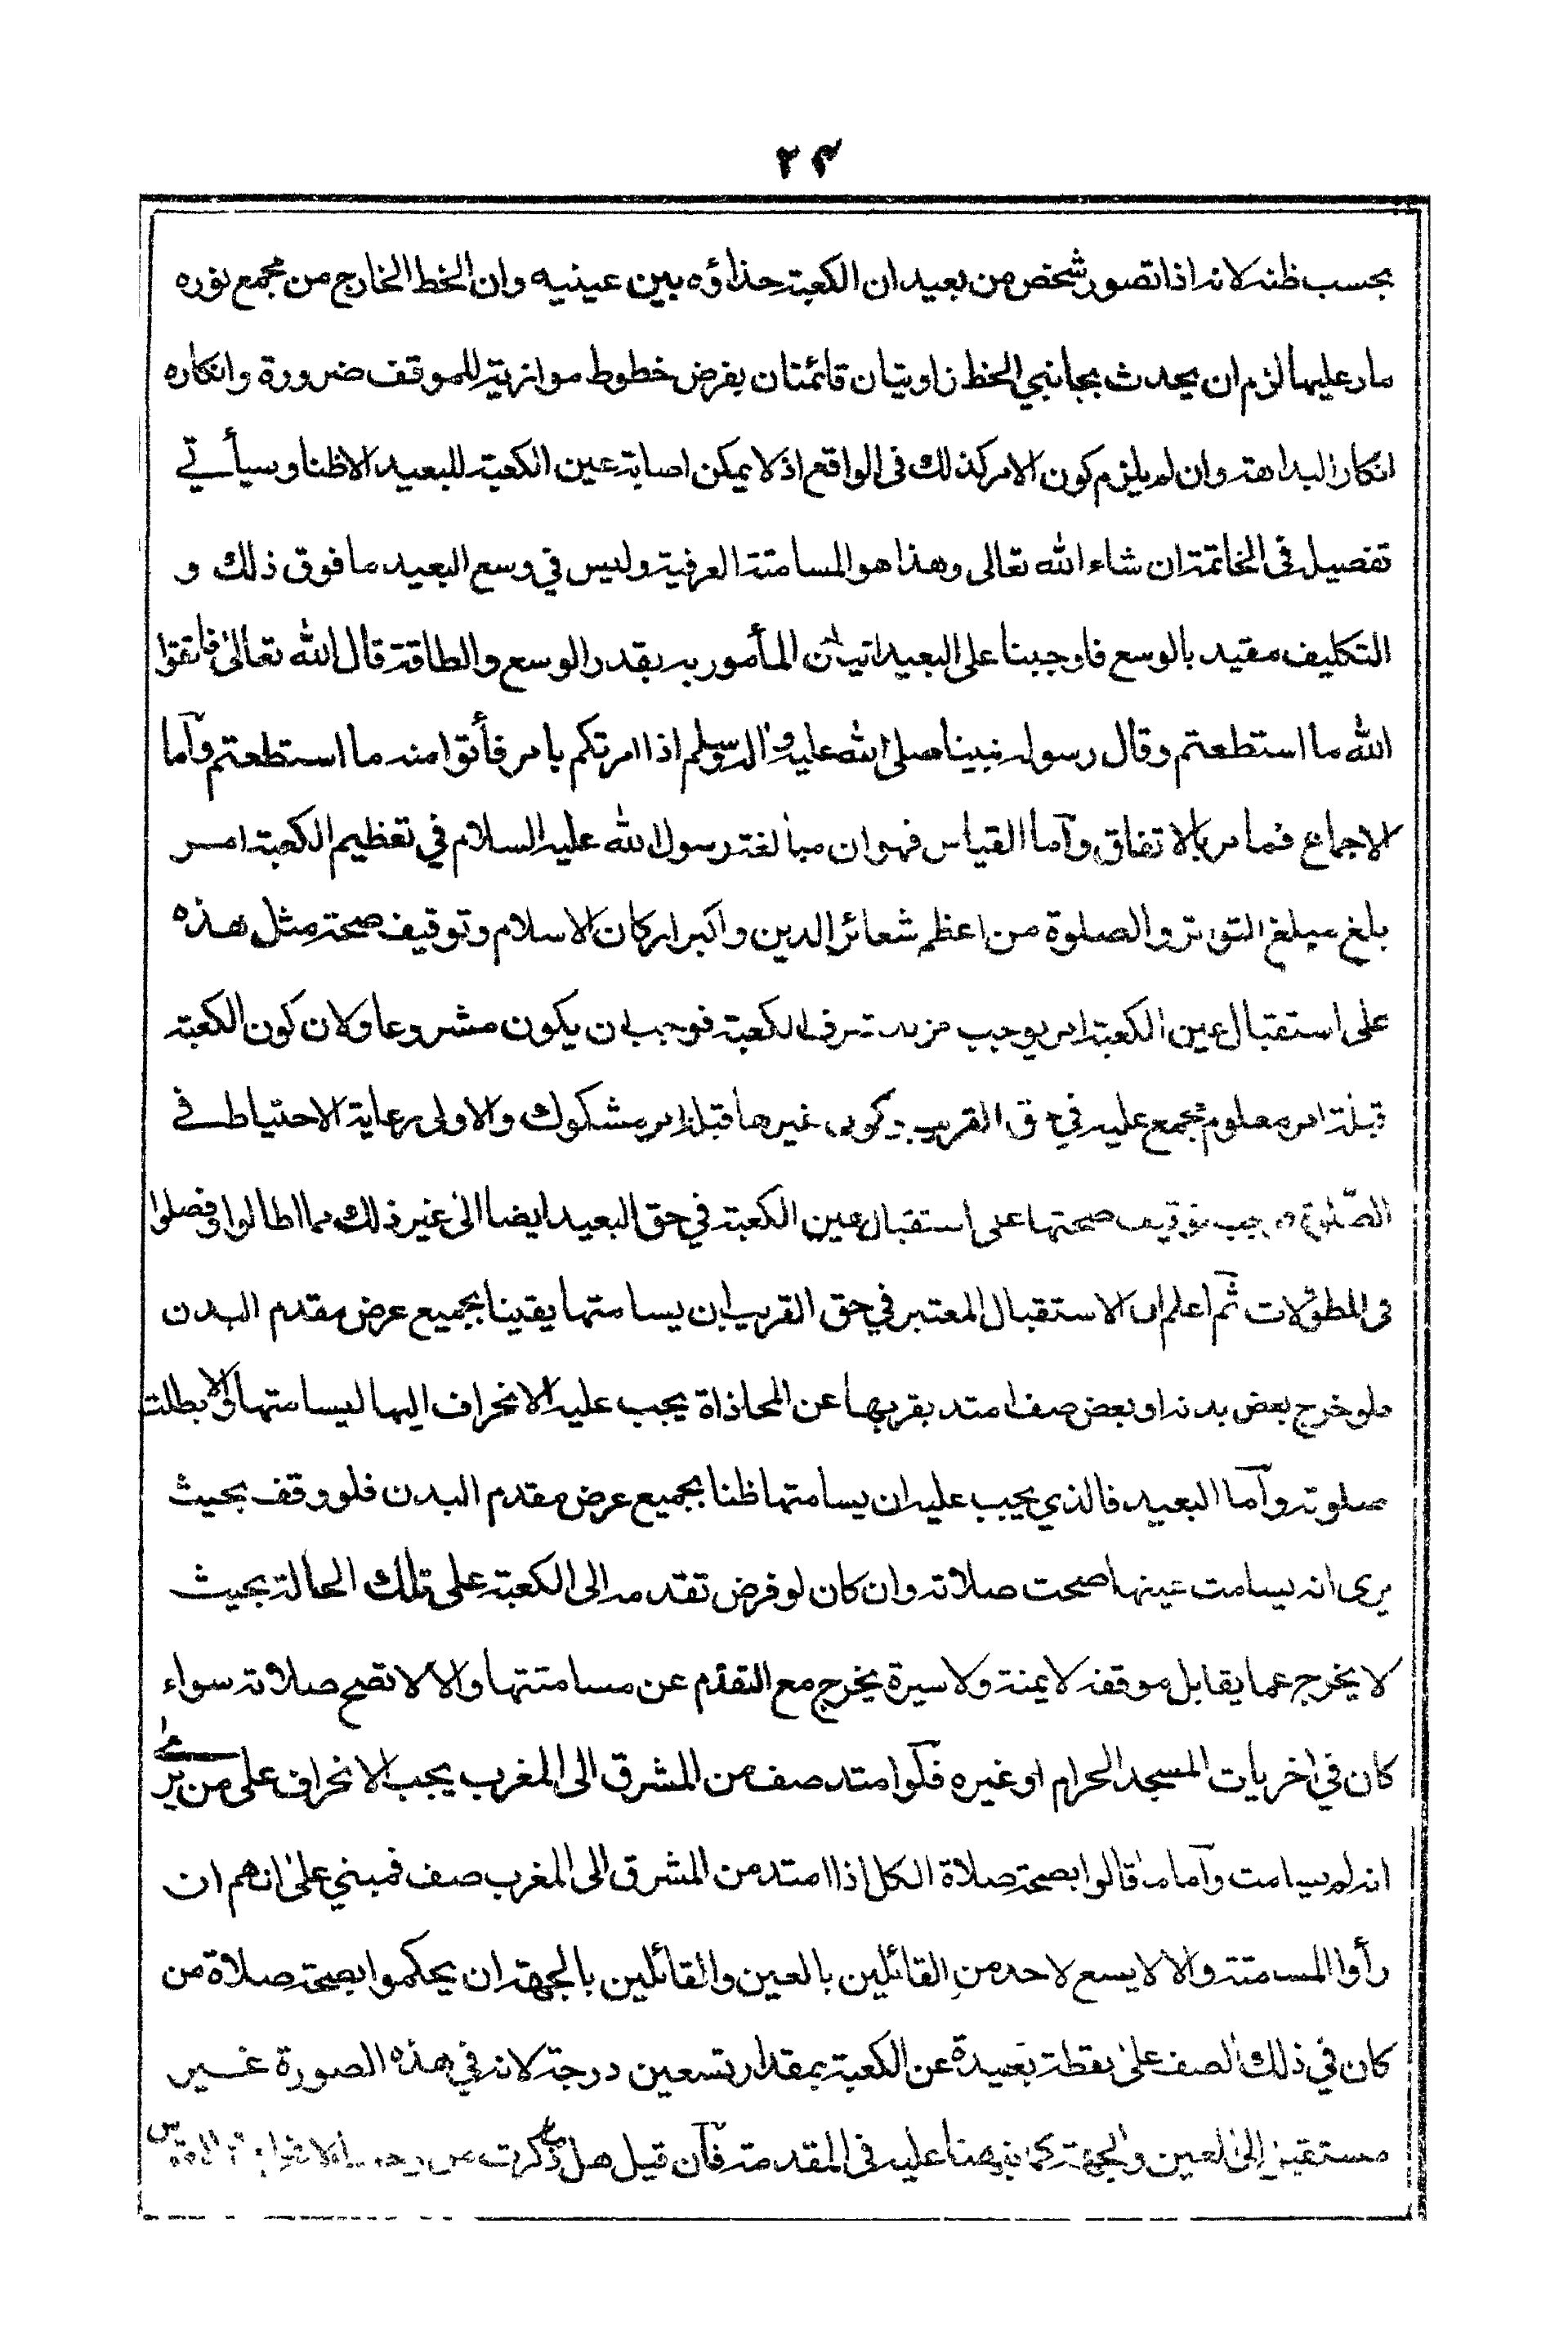 ٢٣
بحسب ظنه لانه اذا تصور شخص من بعيد ان الكعبة حذاؤه بين عينيه وان الخط الخارج من مجمع نوره
مار عليها لزم ان يحدث بجانبي الخط زاويتان قائمتان بفرض خطوط موازية للموقف ضرورة وانكاره
انكار البداهة وان لم يلزم كون الامر كذلك فى الواقع اذ لا يمكن اصابة عين الكعبة للبعيد الا ظنا وسيأتي
تفصيل فى الخاتمة ان شاء الله تعالى وهذا هو المسامتة العرفية وليس في وسع البعيد ما فوق ذلك و
التكليف مقيد بالوسع فاوجبنا على البعيد اتيان المأمور به بقدر الوسع والطاقة قال الله تعالىٰ فاتقوا
الله ما استطعتم وقال رسوله نبينا صلى الله عليه واله وسلم اذا امرتكم بامر فأتوا منه ما استطعتم وآما
الاجماع فمامر بالاتفاق وآما القياس فهو ان مبالغة رسول الله عليه السلام في تعظيم الكعبة امر
بلغ مبلغ التواتر والصلوة من اعظم شعائر الدين واكبر اركان الاسلام وتوقيف صحة مثل هذه
على استقبال عين الكعبة امر يوجب مزيد شرف الكعبة فوجب ان يكون مشروعا ولان كون الكعبة
قبلة امر معلوم مجمع عليه في حق القريب وكون غيرها قبلة امر مشكوك والاولى رعاية الاحتياط في
الصّلوة فوجب توقيف صحتها على استقبال عين الكعبة في حق البعيد ايضا الىٰ غير ذلك مما اطالوا وفصلوا
فى المطولات ثم اعلم ان الاستقبال المعتبر في حق القريب ان يسامتها يقينا بجميع عرض مقدم البدن
فلو خرج بعض بدنه او بعض صف امتد بقربها عن المحاذاة يجب عليه الانحراف اليها ليسامتها والا بطلت
صلوته وآما البعيد فالذي يجب عليه ان يسامتها ظنا بجميع عرض مقدم البدن فلو وقف بحيث
يرى انه يسامت عينها صحت صلاته وان كان لو فرض تقدمه الى الكعبة على تلك الحالة بحيث
لا يخرج عما يقابل موقفه لا يمنة ولا يسرة يخرج مع التقدم عن مسامتتها والا لا تصح صلاته سواء
كان في اخريات المسجد الحرام او غيره فلو امتد صف من المشرق الى المغرب يجب الانحراف على من يرىٰ
انه لم يسامت وآما ما قالوا بصحة صلاة الكل اذا امتد من المشرق الى المغرب صف فمبني علىٰ انهم ان
رأوا المسامتة والا لا يسع لاحد من القائلين بالعين والقائلين بالجهة ان يحكموا بصحة صلاة من
كان في ذلك الصف علىٰ نقطة بعيدة عن الكعبة بمقدار تسعين درجة لانه في هذه الصورة غير
مستقبل الى العين والجهة كما نبهنا عليه فى المقدمة فآن قيل هل ما ذكرت من